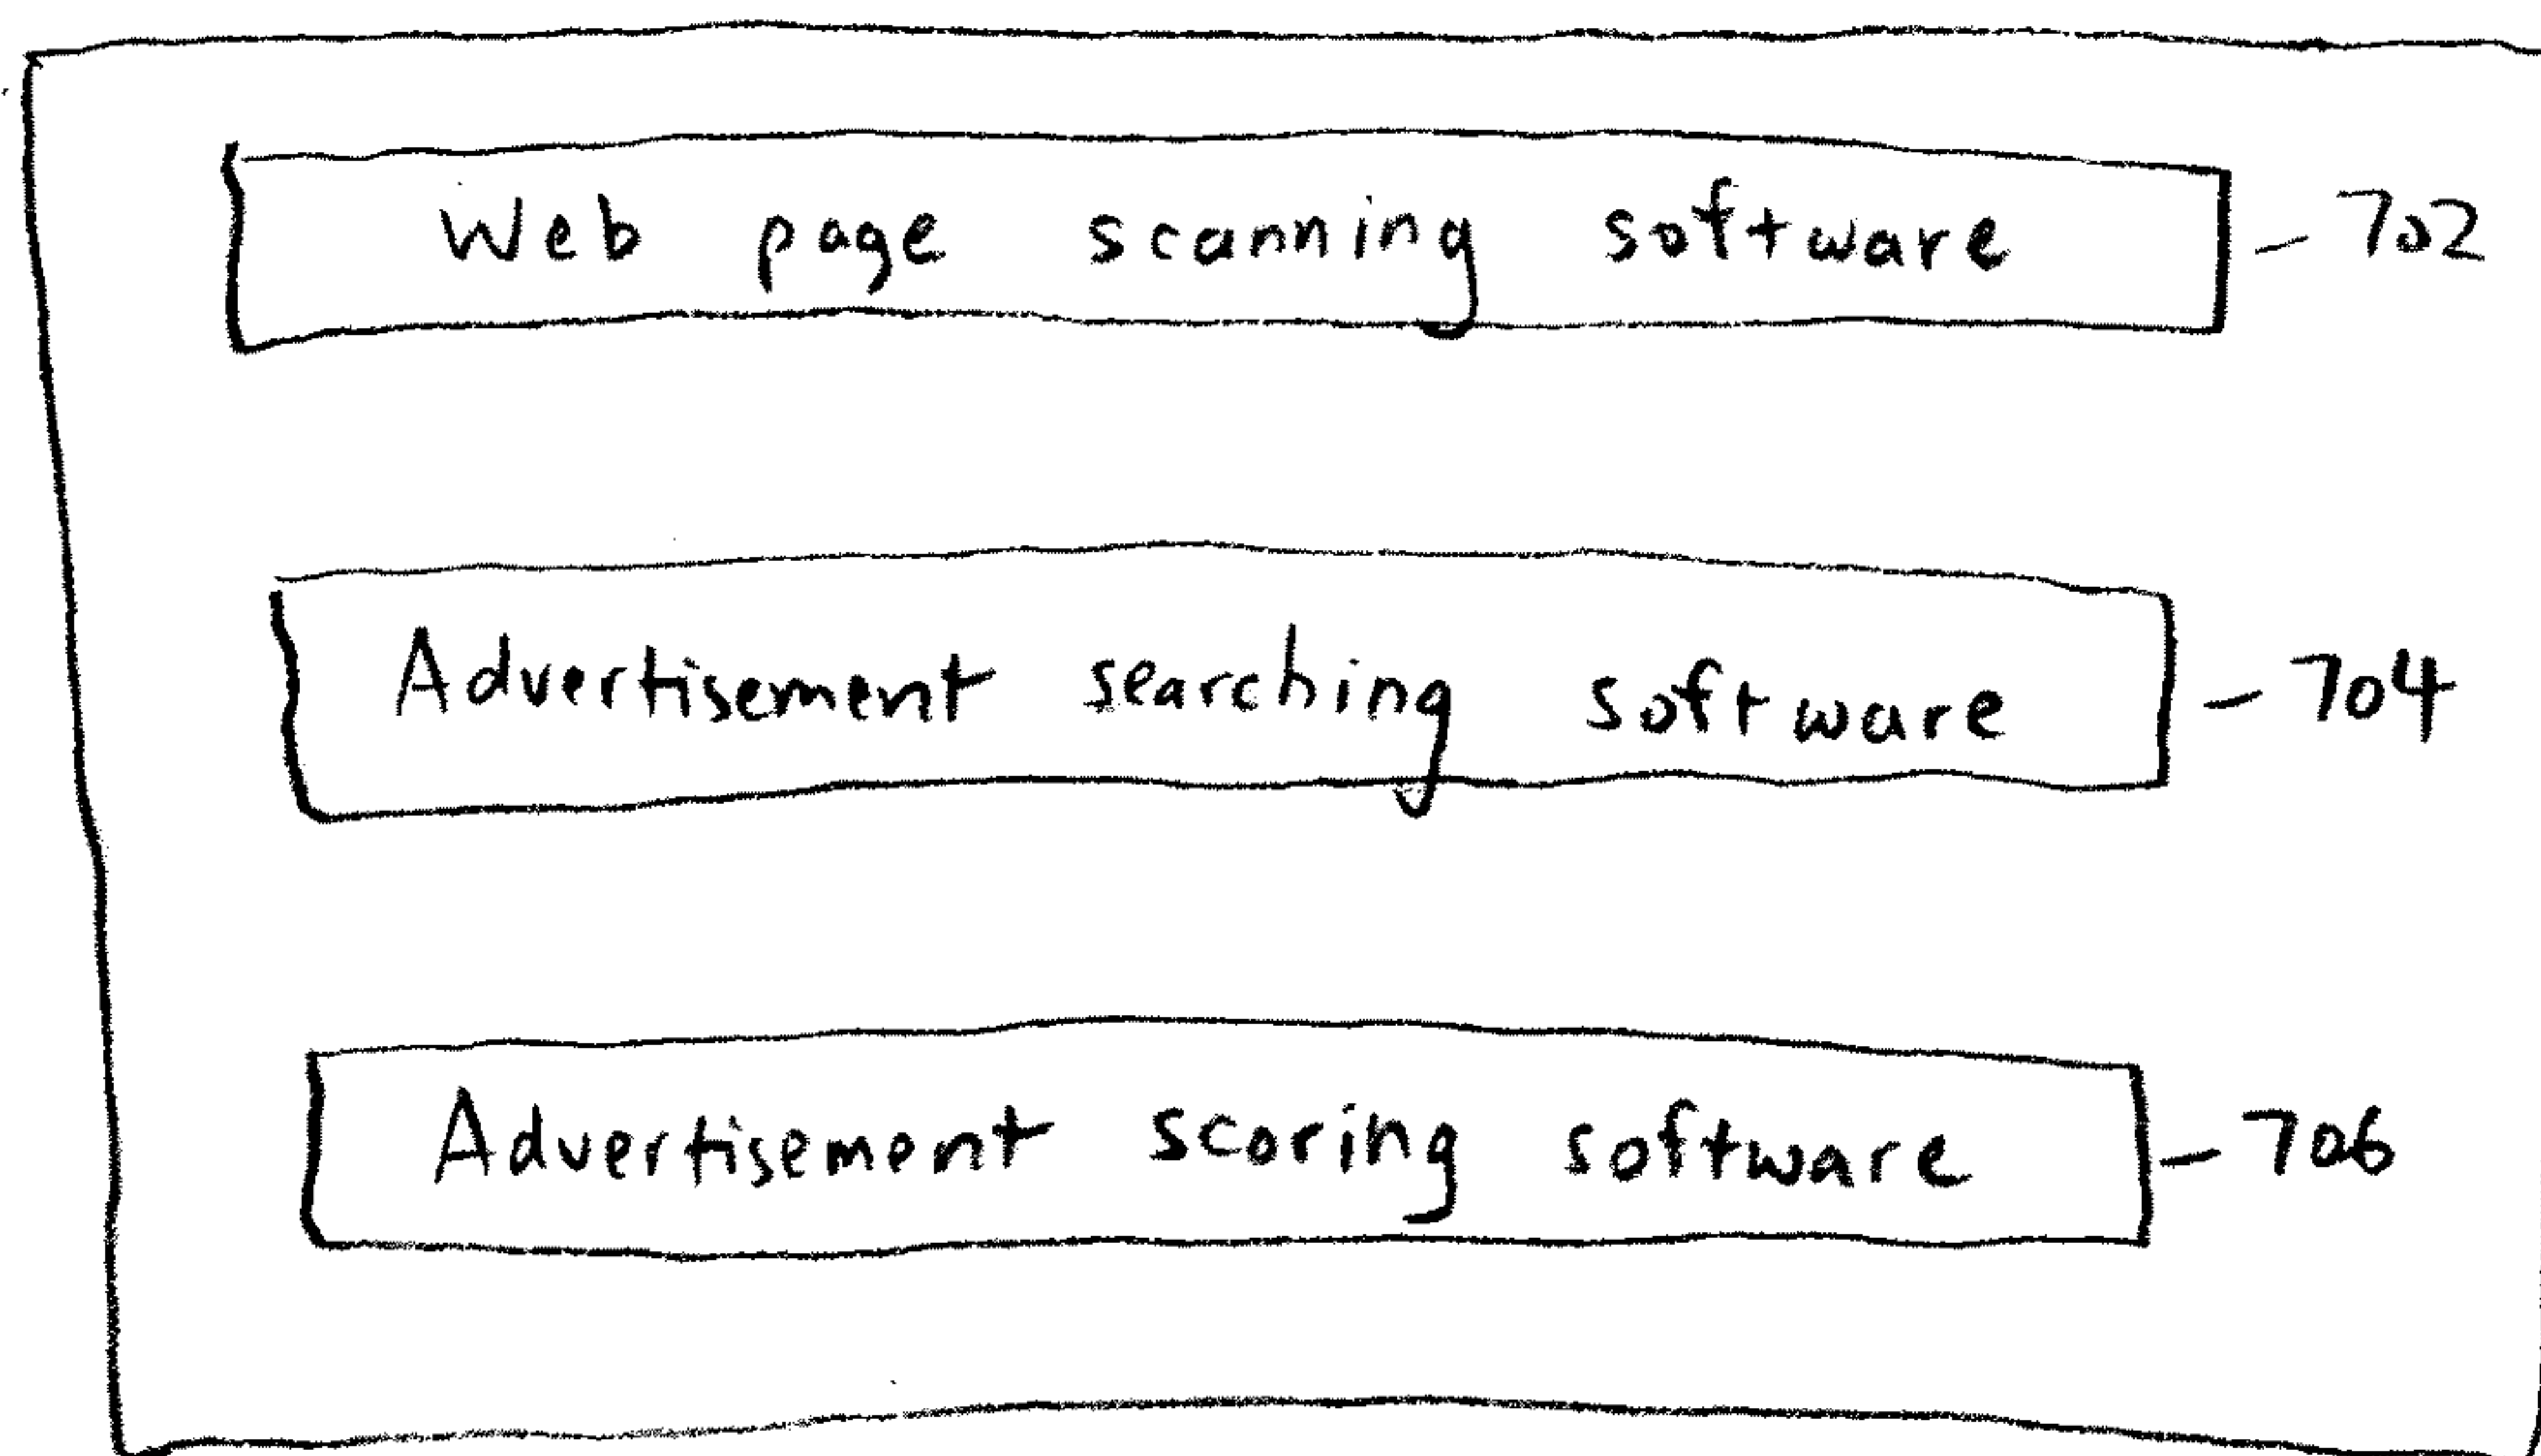 Web page scanning software - 702
Advertisement searching software - 704
Advertisement scoring software - 706